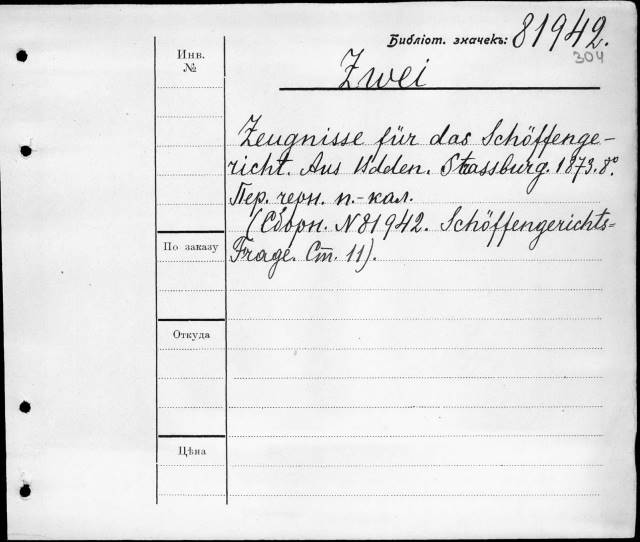 Библіот. значекъ: 81942.
304
Инв.
№
Zwei
Zeugnisse für das Schöffenge-
richt. Aus Udden. Strassburg. 1873. 8°.
Пер. черн. п.-кал.
(Сборн. N 81942. Schöffengerichts=
По заказу
Frage. Ст. 11).
Откуда
Цѣна